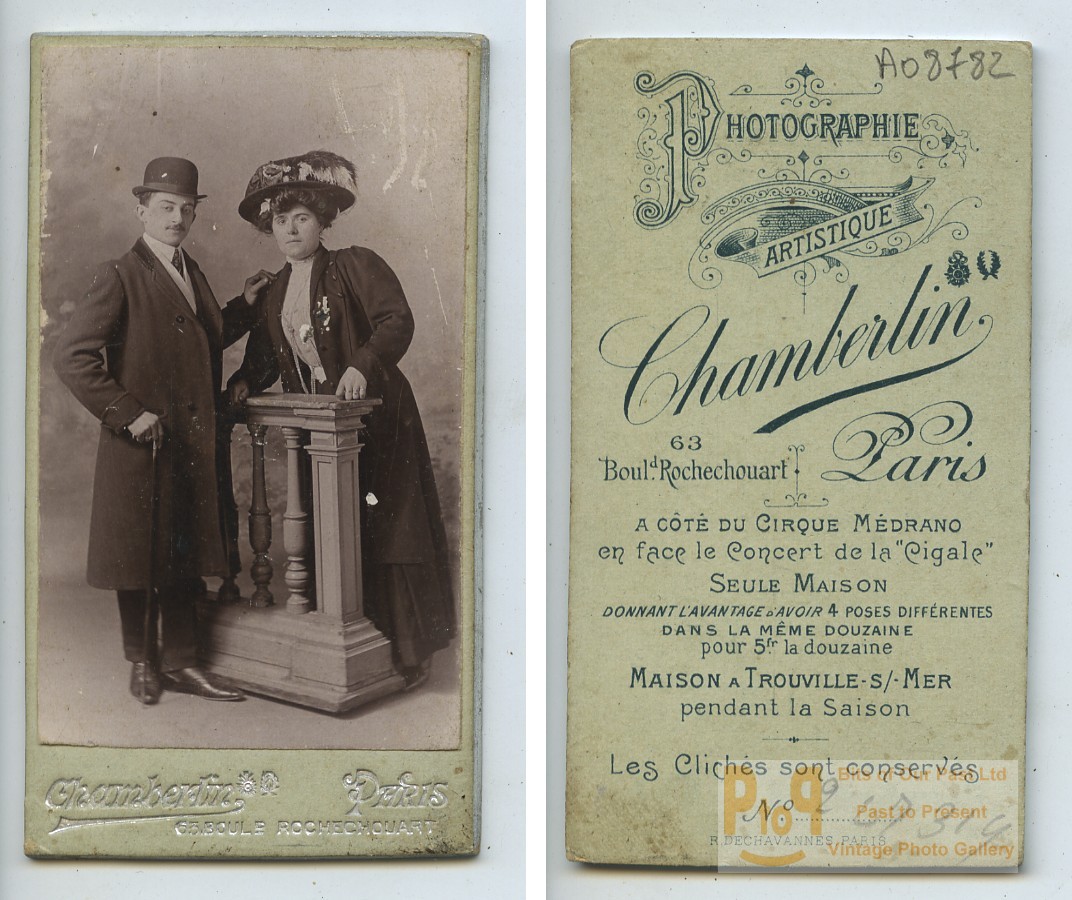 Chamberlin Paris
63, BOULE ROCHECHOUART
A08782
PHOTOGRAPHIE
ARTISTIQUE
Chamberlin,
63
Boul.d Rochechouart
Paris
A CÔTÉ DU CIRQUE MÉDRANO
en face le Concert de la "Cigale"
SEULE MAISON
DONNANT L'AVANTAGE D'AVOIR 4 POSES DIFFÉRENTES
DANS LA MÊME DOUZAINE
pour 5fr la douzaine
MAISON A TROUVILLE-S/-MER
pendant la Saison
Les Clichés sont conservés
No
R. DECHAVANNES PARIS
PToP
Bits of Our Past Ltd
Past to Present
Vintage Photo Gallery